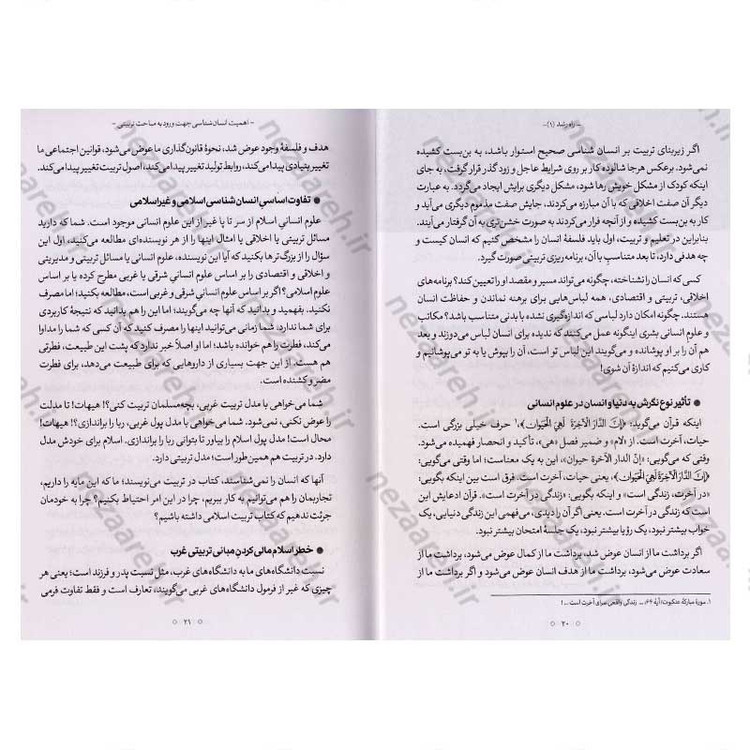 - راه رشد (۱) -
اگر زیربنای تربیت بر انسان شناسی صحیح استوار باشد، به بن‌بست کشیده
نمی‌شود. برعکس هرجا شالوده کار بر روی شرایط عاجل و زود گذر قرار گرفت، به جای
اینکه کودک از مشکل خویش رها شود، مشکل دیگری برایش ایجاد می‌گردد. به عبارت
دیگر آن صفت اخلاقی که با آن مبارزه می‌کردند، جایش صفت مذموم دیگری می‌آید و
کار به بن‌بست کشیده و از آنچه فرار می‌کردند به صورت خشن‌تری به آن گرفتار می‌آیند.
بنابراین در تعلیم و تربیت، اول باید فلسفهٔ انسان را مشخص کنیم که انسان کیست و
چه هدفی دارد، تا بعد متناسب با آن، برنامه‌ریزی تربیتی صورت گیرد.
کسی که انسان را نشناخته، چگونه می‌تواند مسیر و مقصد او را تعیین کند؟ برنامه‌های
اخلاقی، تربیتی و اقتصادی، همه لباس‌هایی برای برهنه نماندن و حفاظت انسان
هستند. چگونه امکان دارد لباسی که اندازه‌گیری نشده با بدنی متناسب باشد؟ مکاتب
و علوم انسانی بشری اینگونه عمل می‌کنند که ندیده برای انسان لباس می‌دوزند و بعد
هم آن را بر او پوشانده و می‌گویند این لباس تو است، آن را بپوش یا به تو می‌پوشانیم و
کاری می‌کنیم که اندازهٔ آن شوی!
● تأثیر نوع نگرش به دنیا و انسان در علوم انسانی
اینکه قرآن می‌گوید: ﴿إِنَّ الدَّارَ الْآخِرَةَ لَهِيَ الْحَيَوَانُ﴾،۱ حرف خیلی بزرگی است.
حیات، آخرت است. از «لام» و ضمیر فصل «هی»، تأکید و انحصار فهمیده می‌شود.
وقتی که می‌گویی: «إنّ الدار الآخرة حیوان»، این به یک معناست؛ اما وقتی می‌گویی:
﴿إِنَّ الدَّارَ الْآخِرَةَ لَهِيَ الْحَيَوَانُ﴾، یعنی حیات، آخرت است. فرق است بین اینکه بگویی:
«در آخرت، زندگی است» و اینکه بگویی: «زندگی در آخرت است». قرآن ادعایش این
است که زندگی در آخرت است. یعنی اگر آن را دیدی، می‌فهمی این زندگی دنیایی، یک
خواب بیشتر نبود، یک رؤیا بیشتر نبود، یک جلسهٔ امتحان بیشتر نبود.
اگر برداشت ما از انسان عوض شد، برداشت ما از کمال عوض می‌شود، برداشت ما از
سعادت عوض می‌شود، برداشت ما از هدف انسان عوض می‌شود و اگر برداشت ما از
۱. سورهٔ مبارکهٔ عنکبوت/ آیهٔ ۶۴؛ ... زندگی واقعی سرای آخرت است ...!
۲۰
- اهمیت انسان‌شناسی جهت ورود به مباحث تربیتی -
هدف و فلسفهٔ وجود عوض شد، نحوهٔ قانون‌گذاری ما عوض می‌شود، قوانین اجتماعی ما
تغییر بنیادی پیدا می‌کند، روابط تولید تغییر پیدا می‌کند، اصول تربیت تغییر پیدا می‌کند.
● تفاوت اساسی انسان‌شناسی اسلامی و غیراسلامی
علوم انسانیِ اسلام از سر تا پا غیر از این علوم انسانی موجود است. شما که دارید
مسائل تربیتی یا اخلاقی یا امثال اینها را از هر نویسنده‌ای مطالعه می‌کنید، اول این
سؤال را از بزرگ‌ترها بکنید که آیا این نویسنده، علوم انسانی یا مسائل تربیتی و مدیریتی
و اخلاقی و اقتصادی را بر اساس علوم انسانی شرقی یا غربی مطرح کرده یا بر اساس
علوم اسلامی؟ اگر بر اساس علوم انسانی شرقی و غربی است، مطالعه بکنید؛ اما مصرف
نکنید. بفهمید و بدانید که آنها چه می‌گویند؛ اما این را هم بدانید که نتیجهٔ کاربردی
برای شما ندارد. شما زمانی می‌توانید اینها را مصرف کنید که آن کسی که شما را مداوا
می‌کند، فطرت را هم خوانده باشد؛ اما او اصلاً خبر ندارد که پشت این طبیعت، فطرتی
هم هست. از این جهت بسیاری از داروهایی که برای طبیعت می‌دهد، برای فطرت
مضر و کشنده است.
شما می‌خواهی با مدل تربیت غربی، بچه‌مسلمان تربیت کنی؟! هیهات! تا مدلت
را عوض نکنی، نمی‌شود. شما می‌خواهی با مدل پول غربی، ربا را براندازی؟! هیهات!
محال است! مدل پول اسلام را بیاور تا بتوانی ربا را براندازی. اسلام برای خودش مدل
دارد. در تربیت هم همین‌طور است؛ مدل تربیتی دارد.
آنها که انسان را نمی‌شناسند، کتاب در تربیت می‌نویسند؛ ما که این مایه را داریم،
تجاربمان را هم می‌توانیم به کار ببریم، چرا در این امر احتیاط بکنیم؟ چرا به خودمان
جرئت ندهیم که کتاب تربیت اسلامی داشته باشیم؟
● خطر اسلام مالی کردن مبانی تربیتی غرب
نسبت دانشگاه‌های ما به دانشگاه‌های غرب، مثل نسبت پدر و فرزند است؛ یعنی هر
چیزی که غیر از فرمول دانشگاه‌های غربی می‌گویند، تعارف است و فقط تفاوت فرمی
۲۱
nezaareh.ir